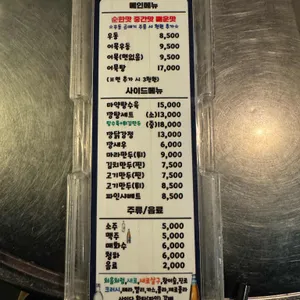 메인메뉴
순한맛 중간맛 매운맛
우동 8,500
어묵우동 9,500
어묵(면없음) 9,500
어묵탕 17,000
(※면 추가 시 3천원)
사이드메뉴
마약탕수육 15,000
깐풍세트 (소)13,000
(중)18,000
깐닭강정 13,000
깐새우 6,000
마라만두(튀) 9,000
김치만두(찐) 7,500
고기만두(찐) 7,500
고기만두(튀) 8,500
파인샤베트 8,500
주류/음료
소주 5,000
맥주 5,000
매화수 6,000
청하 6,000
음료 2,000
처음처럼,새로,새로살구,참이슬,진로
테라,켈리,카스